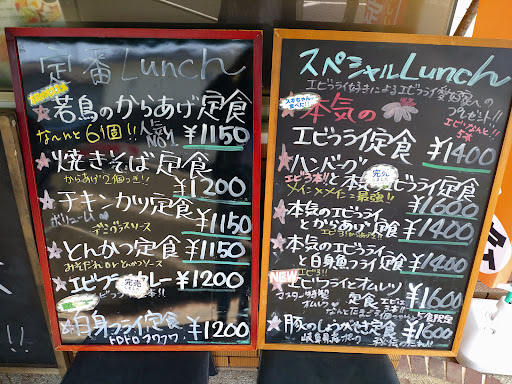 定番Lunch
若鳥のからあげ定食
なんと6個!! 人気NO.1 ¥1150
焼きそば定食
からあげ2個つき!! ¥1200
チキンカツ定食
ボリューム ¥1150
デミグラスソース
とんかつ定食 ¥1150
みそだれ or とんかつソース
エビフライカレー ¥1200
完売
白身フライ定食
フワフワ ¥1200
スペシャルLunch
エビフライ好きによるエビフライ愛好家への
プレゼント!!
本気の
エビなんと!!
5本
エビフライ定食 ¥1400
ハンバーグ
完売
エビ3本!! と本気のエビフライ定食
メインメイン最強!! ¥1600
本気のエビフライ
とからあげ定食 ¥1400
本気のエビフライ
と白身魚フライ定食 ¥1400
NEW
エビフライとオムレツ
マスター特製
オムレツ 定食 ¥1600
豚のしょうがやき定食 ¥1600